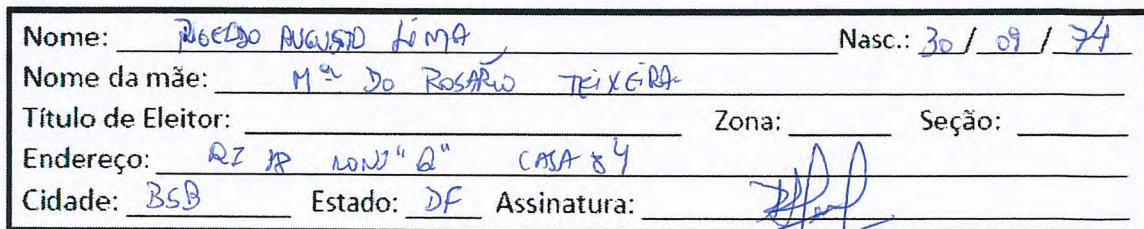 Nome: AUGUSTO LIMA Nasc.: 30 / 09 / 74
Nome da mãe: Mª DO ROSÁRIO TEIXEIRA
Título de Eleitor: Zona: Seção:
Endereço: 18 "Q" CASA 84
Cidade: BSB Estado: DF Assinatura: